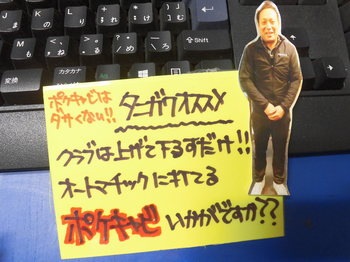 ポケキャビは
ダサくない!!
ターガワオススメ
クラブは上げて下ろすだけ!!
オートマチックに打てる
ポケキャビ いかがですか??
変換
カタカナ
Shift